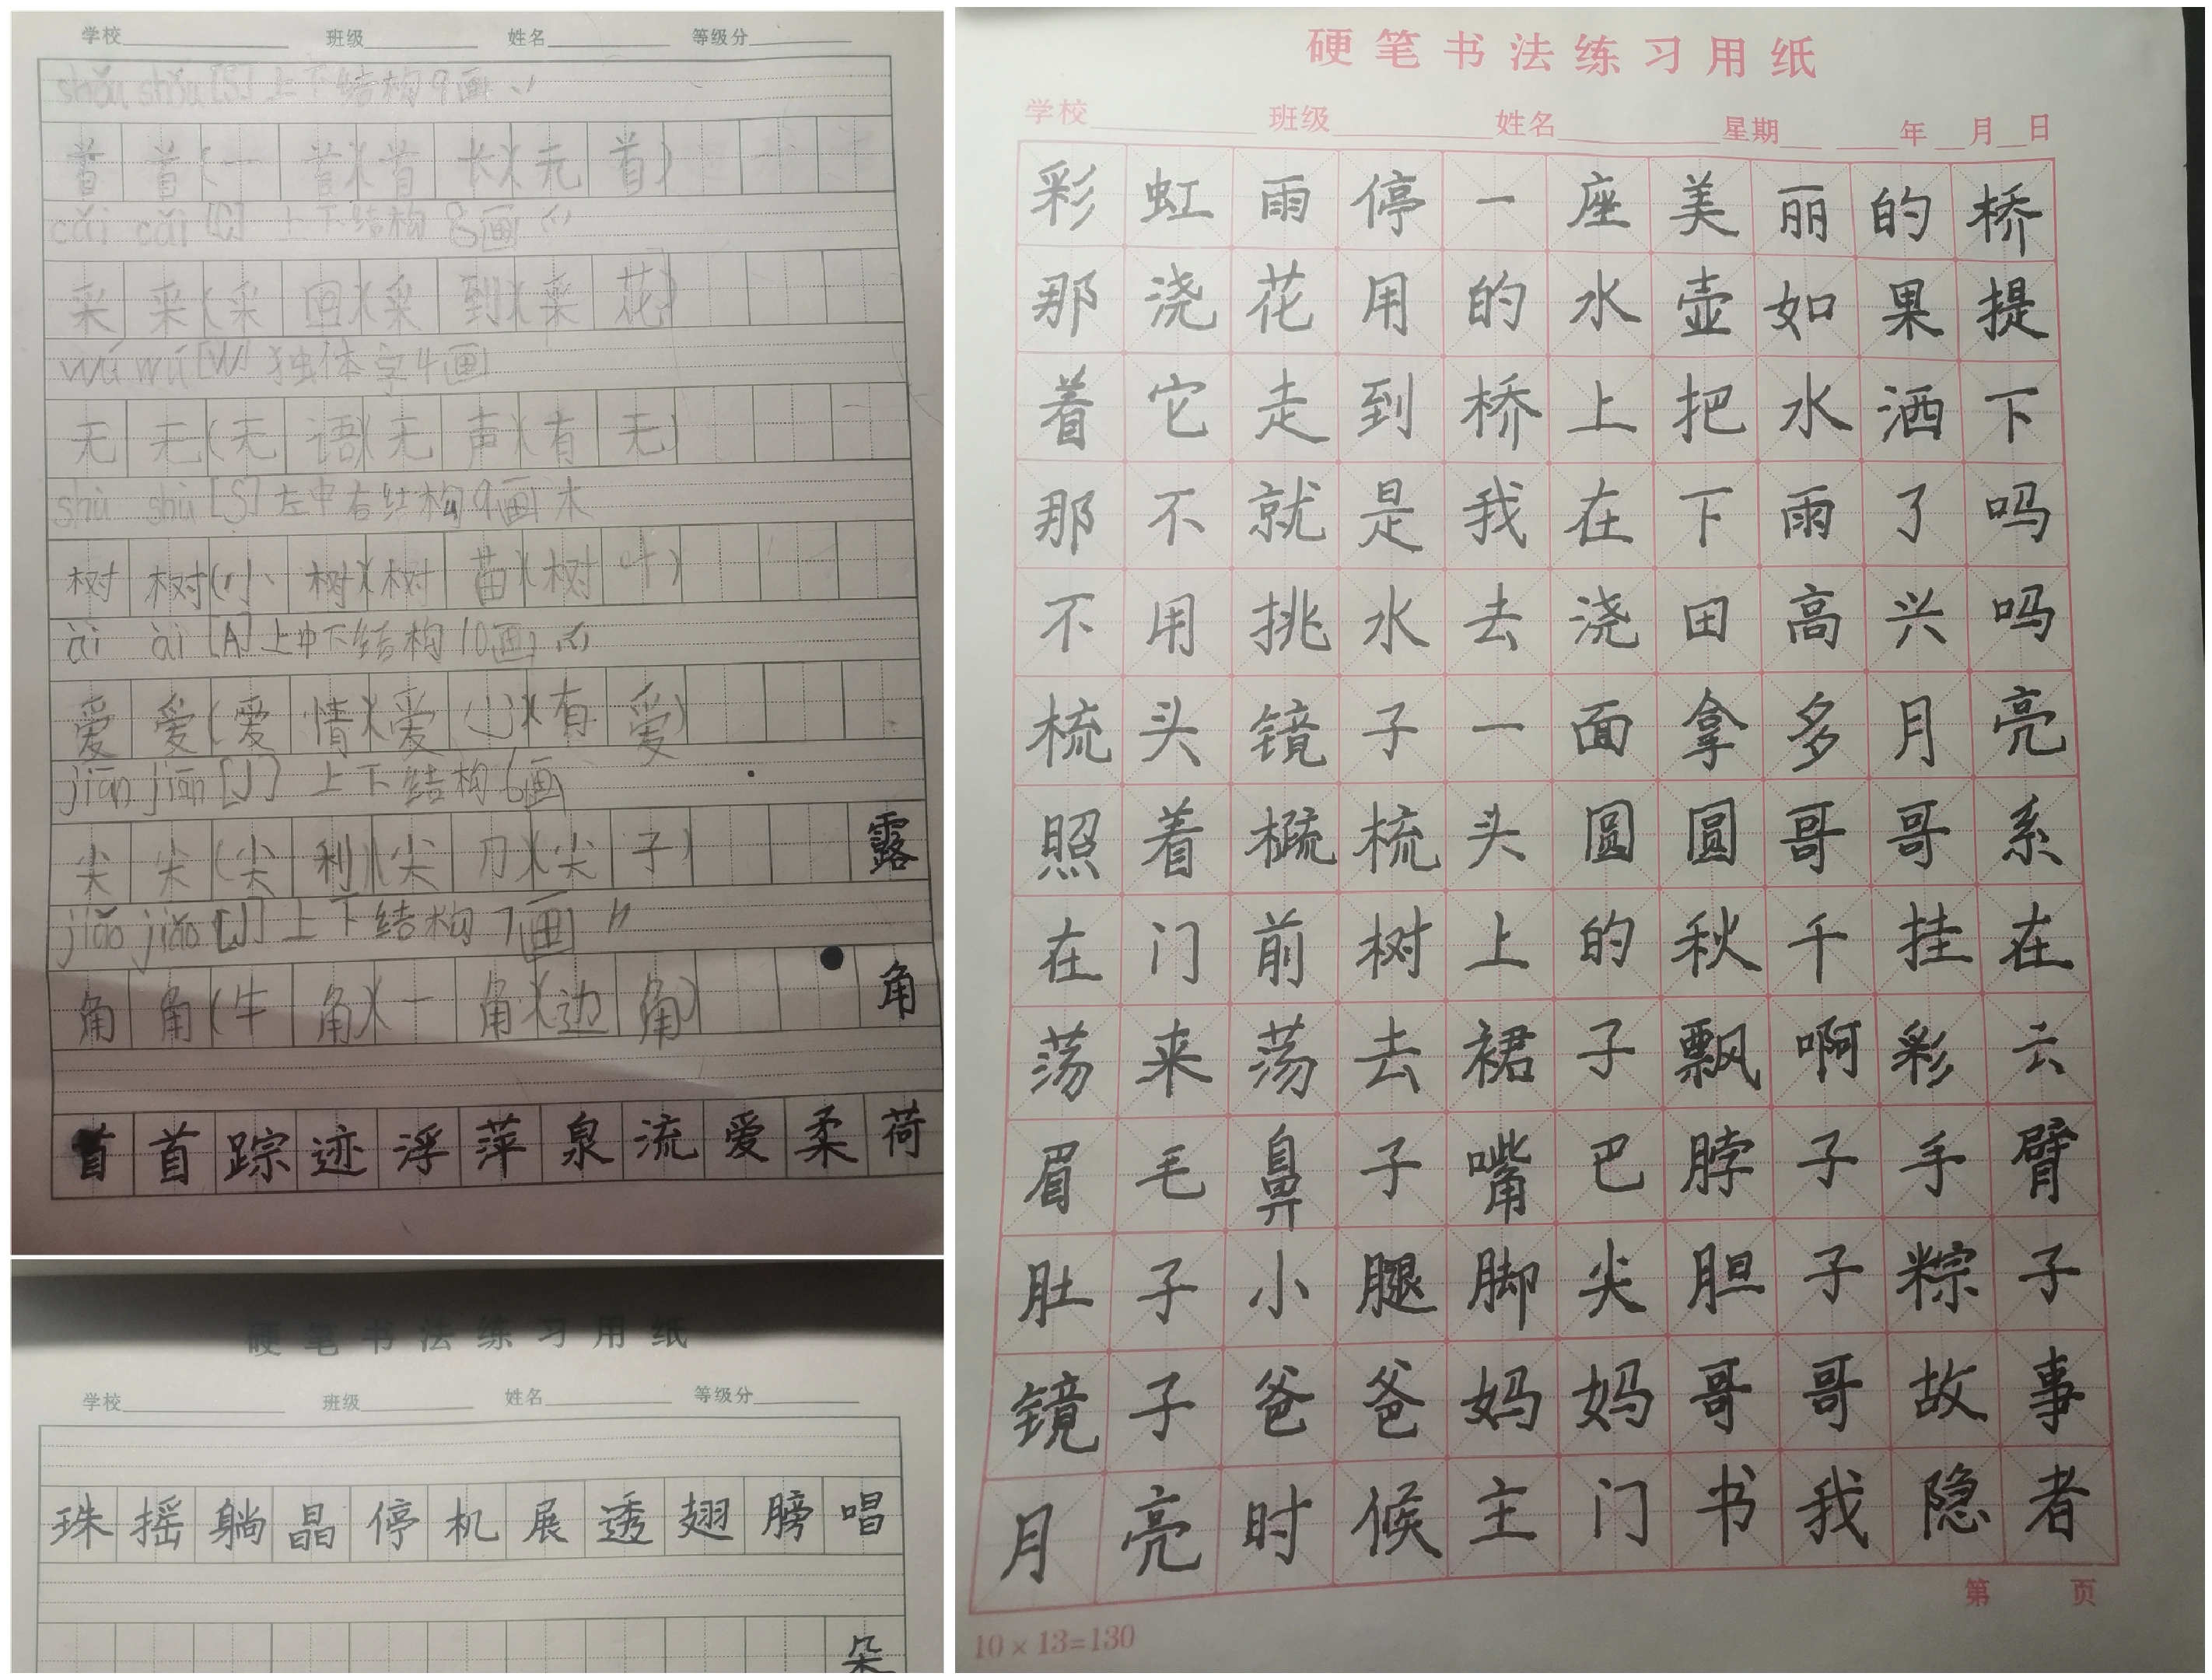 学校 班级 姓名 等级分
shǒu shǒu [S] 上下结构9画丷
首 首(一 首)(首 长)(元 首)
cǎi cǎi [C] 上下结构 8画 爫
采 采(采 回)(采 到)(采 花)
wú wú [W] 独体字4画
无 无(无 语)(无 声)(有 无)
shù shù [S] 左中右结构9画 木
树 树(小 树)(树 苗)(树 叶)
ài ài [A] 上中下结构10画 爫
爱 爱(爱 情)(爱 心)(有 爱)
jiān jiān [J] 上下结构6画
尖 尖(尖 利)(尖 刀)(尖 子) 露
jiǎo jiǎo [J] 上下结构7画 ⺈
角 角(牛 角)(一 角)(边 角) 角
首 首 踪 迹 浮 萍 泉 流 爱 柔 荷
硬笔书法练习用纸
学校 班级 姓名 等级分
珠 摇 躺 晶 停 机 展 透 翅 膀 唱
朵
硬笔书法练习用纸
学校 班级 姓名 星期 年 月 日
彩虹雨停一座美丽的桥
那浇花用的水壶如果提
着它走到桥上把水洒下
那不就是我在下雨了吗
不用挑水去浇田高兴吗
梳头镜子一面拿多月亮
照着梳头圆圆哥哥系
在门前树上的秋千挂在
荡来荡去裙子飘啊彩云
眉毛鼻子嘴巴脖子手臂
肚子小腿脚尖胆子粽子
镜子爸爸妈妈哥哥故事
月亮时候主门书我隐者
第 页
10×13=130